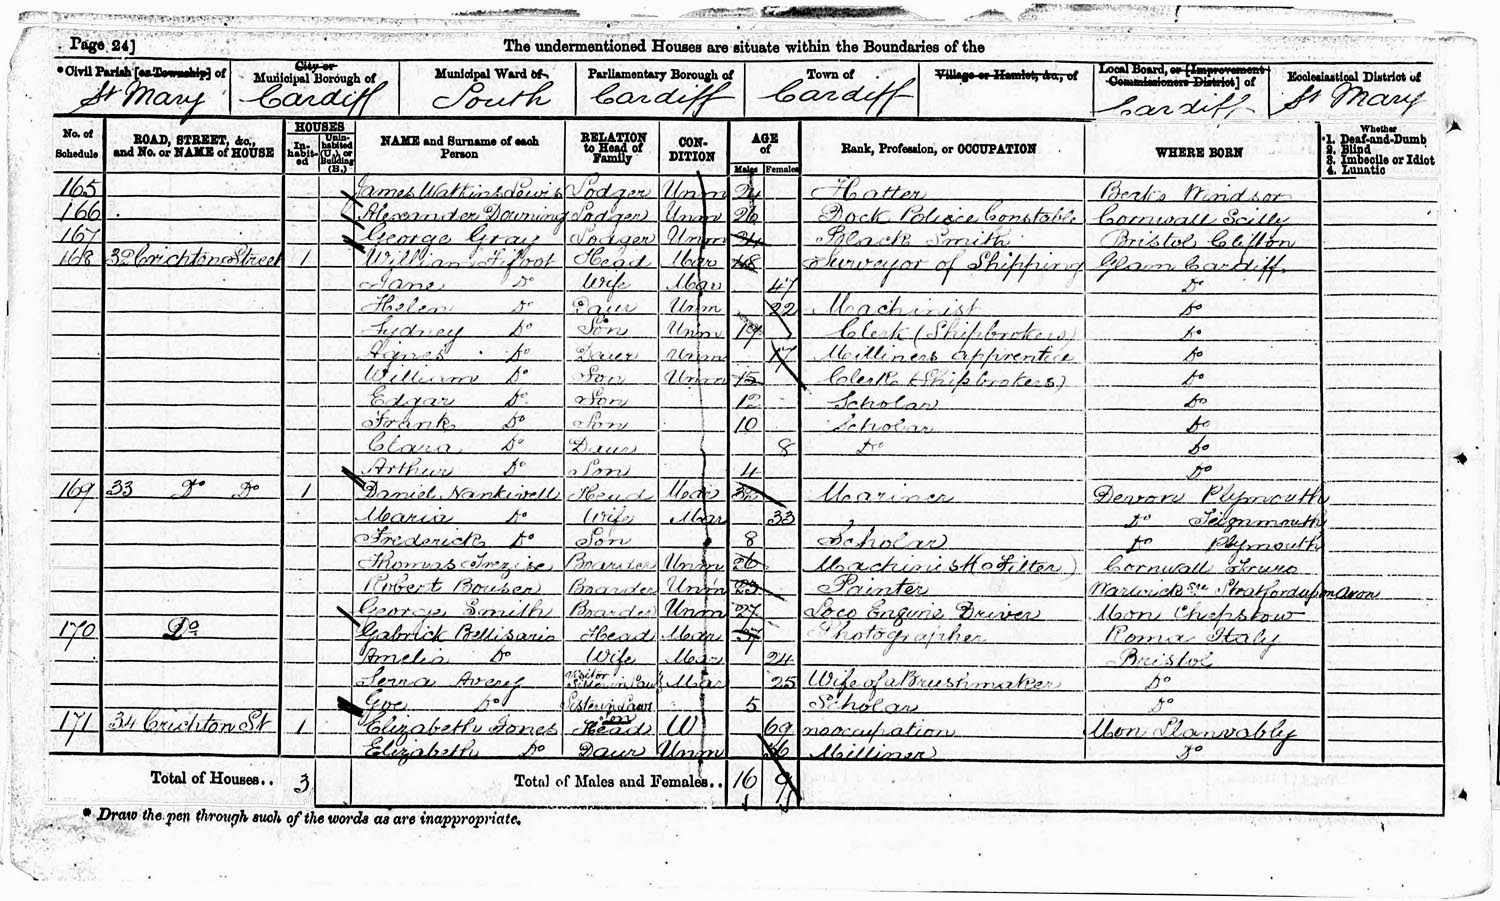 Page 24]
The undermentioned Houses are situate within the Boundaries of the
*Civil Parish [or Township] of St Mary
City or Municipal Borough of Cardiff
Municipal Ward of South
Parliamentary Borough of Cardiff
Town of Cardiff
Village or Hamlet, &c., of
Local Board, or [Improvement Commissioners District] of Cardiff
Ecclesiastical District of St Mary
No. of Schedule
ROAD, STREET, &c., and No. or NAME of HOUSE
HOUSES
Inhabited
Uninhabited (U.), or Building (B.)
NAME and Surname of each Person
RELATION to Head of Family
CONDITION
AGE of
Males
Females
Rank, Profession, or OCCUPATION
WHERE BORN
Whether
1. Deaf-and-Dumb
2. Blind
3. Imbecile or Idiot
4. Lunatic
165 James Watkins Lewis Lodger Unm 24 Hatter Berks Windsor
166 Alexander Downing Lodger Unm 26 Dock Police Constable Cornwall Scilly
167 George Gray Lodger Unm Black Smith Bristol Clifton
168 32 Crichton Street 1 William Head Mar 48 Surveyor of Shipping Glam Cardiff
Jane Do Wife Mar 47 Do
Helen Do Daur Unm 22 Machinist Do
Sydney Do Son Unm 19 Clerk (Shipbrokers) Do
Agnes Do Daur Unm 17 Milliners apprentice Do
William Do Son Unm 15 Clerk (Shipbrokers) Do
Edgar Do Son 12 Scholar Do
Frank Do Son 10 Scholar Do
Clara Do Daur 8 Do Do
Arthur Do Son 4 Do
169 33 Do Do 1 Daniel Nankivell Head Mar 32 Mariner Devon Plymouth
Maria Do Wife Mar 33 Do Teignmouth
Frederick Do Son 8 Scholar Do Plymouth
Thomas Trezise Boarder Unm 26 Machinist (Fitter) Cornwall Truro
Robert Bouser Boarder Unm 23 Painter Warwick Stratford upon Avon
George Smith Boarder Unm 27 Loco Engine Driver Mon Chepstow
170 Do Gabrick Bellisario Head Mar Photographer Roma Italy
Amelia Do Wife Mar 24 Bristol
Avery Visitor Sister in Law Mar 25 Wife of a Brushmaker Do
Do Sister in Laws Son 5 Scholar Do
171 34 Crichton St 1 Elizabeth Jones Head W 69 no occupation Mon Llanvabley
Elizabeth Do Daur Unm 36 Milliner Do
Total of Houses.. 3
Total of Males and Females.. 16 9
* Draw the pen through such of the words as are inappropriate.